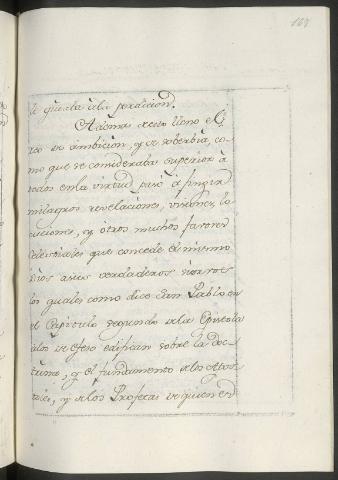 167
le guiaba a la perdicion.
Ademas de esto lleno el
reo de ambicion, y de soberbia, co-
mo que se consideraba superior a
todos en la virtud pasó á fingir
milagros, revelaciones, visiones, lo
cuciones, y otros muchos favores
celestiales que concede el mismo
Dios a sus verdaderos siervos
los quales como dice San Pablo en
el Capitulo segundo de la Epistola
a los de Efeso edifican sobre la doc-
trina, y el fundamento de los Apos-
toles, y de los Profetas de quienes